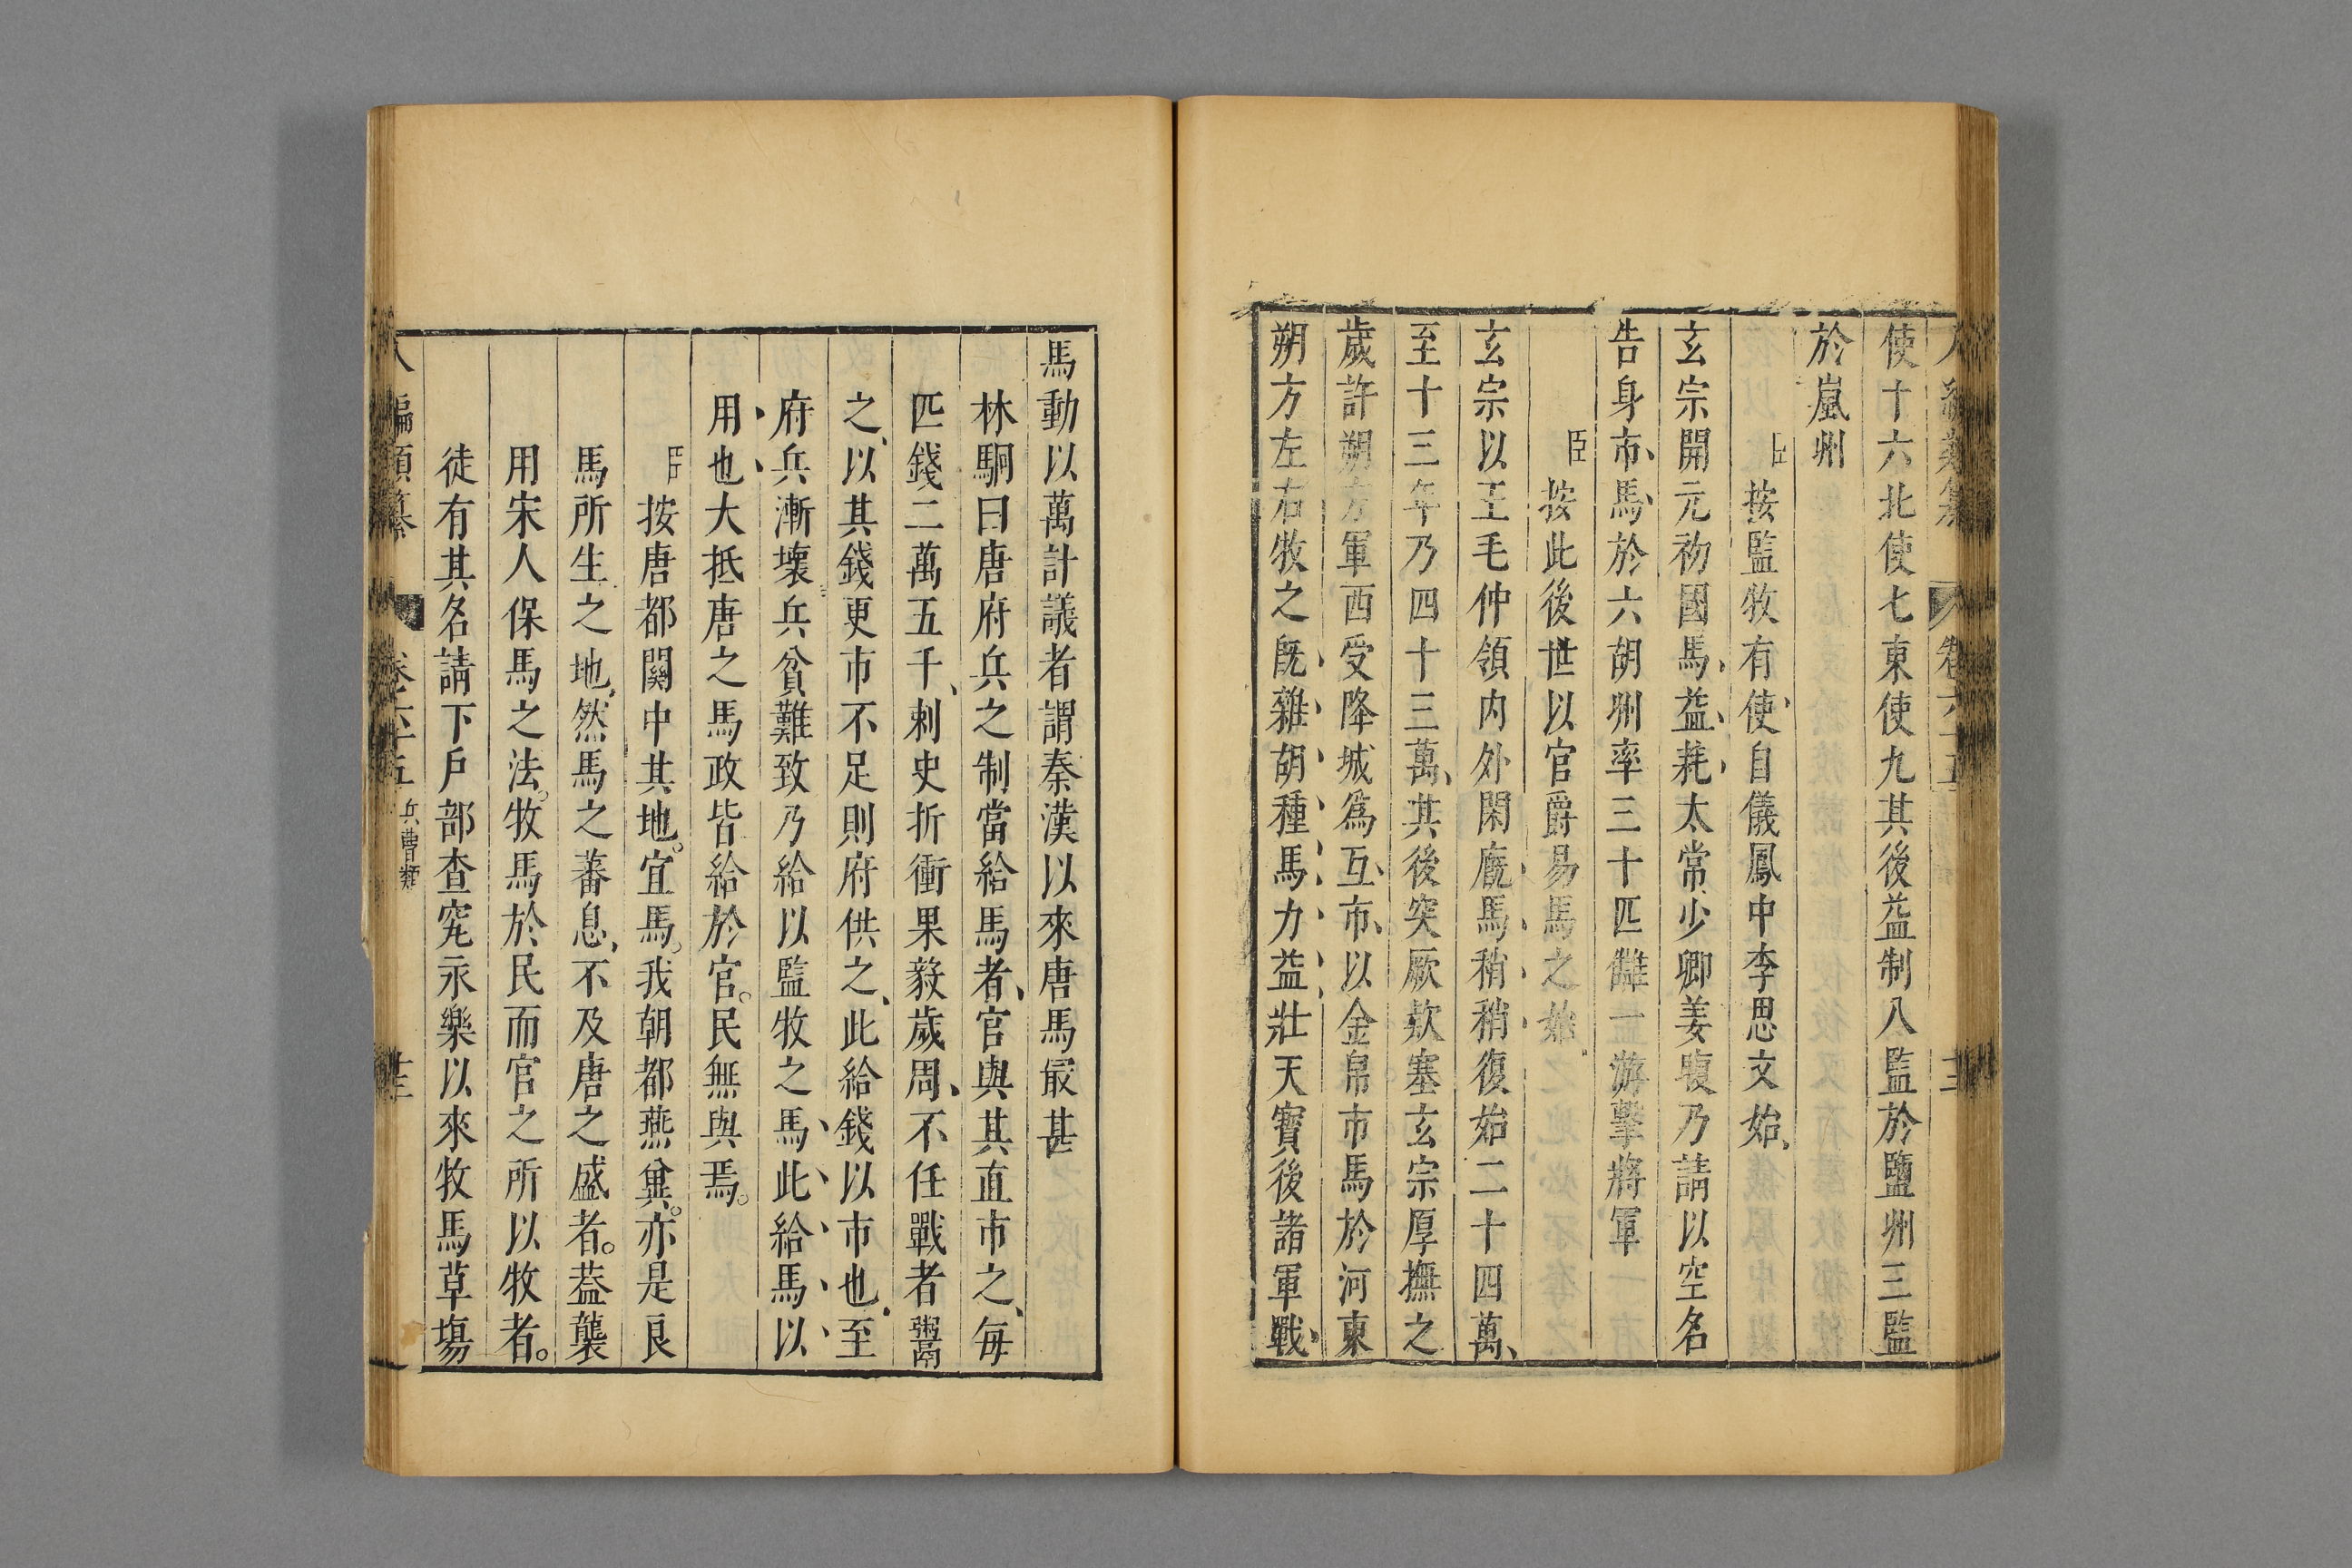 使十六北使七東使九其後益制八監於鹽州三監
於嵐州
臣按監牧有使自儀鳳中李思文始
玄宗開元初國馬益耗太常少卿姜晦乃請以空名
告身市馬於六胡州率三十匹讎一游擊將軍
臣按此後世以官爵易馬之始
玄宗以王毛仲領內外閑廐馬稍稍復始二十四萬
至十三年乃四十三萬其後突厥欵塞玄宗厚撫之
歲許朔方軍西受降城爲互市以金帛市馬於河東
朔方左右牧之旣雜胡種馬力益壯天寶後諸軍戰
馬動以萬計議者謂秦漢以來唐馬最甚
林駧曰唐府兵之制當給馬者官與其直市之每
匹錢二萬五千刺史折衝果毅歲周不任戰者鬻
之以其錢更市不足則府供之此給錢以市也至
府兵漸壞兵貧難致乃給以監牧之馬此給馬以
用也大抵唐之馬政皆給於官民無與焉
臣按唐都關中其地宜馬我朝都燕兾亦是良
馬所生之地然馬之蕃息不及唐之盛者葢襲
用宋人保馬之法牧馬於民而官之所以牧者
徒有其名請下戶部查究永樂以來牧馬草塲
卷六十五 兵曹類